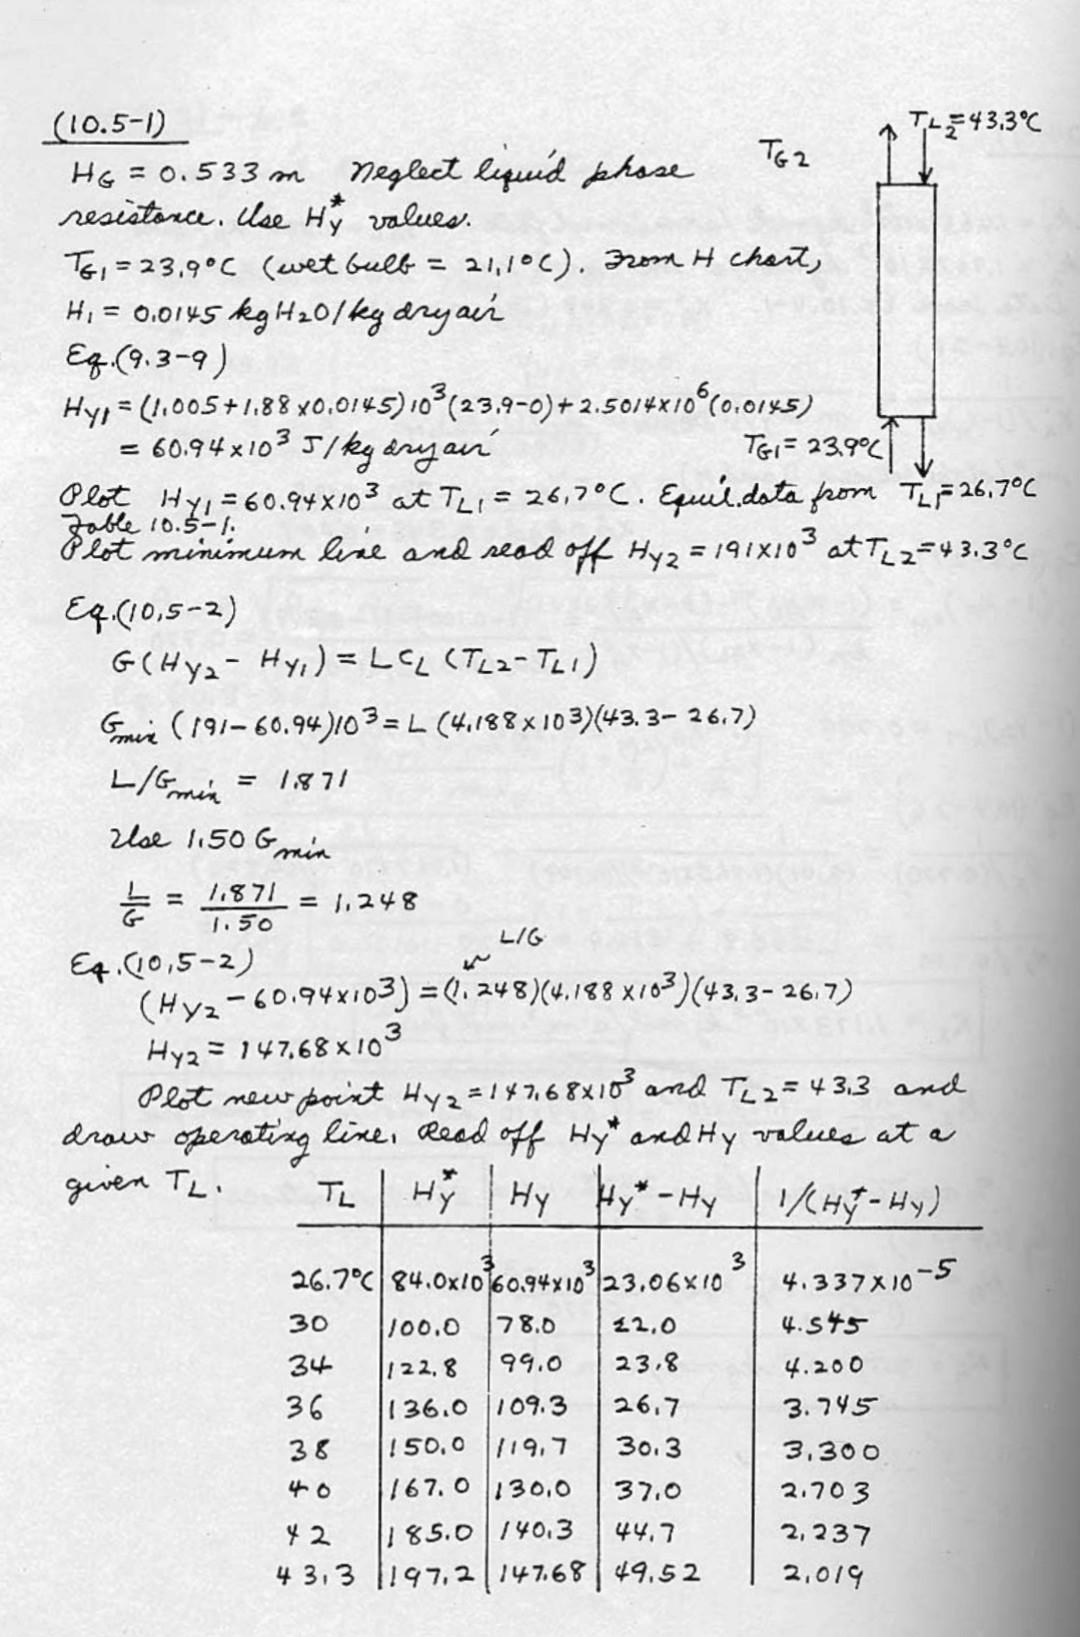 (10.5-1)
T_L2 = 43.3°C
T_G2
H_G = 0.533 m Neglect liquid phase
resistance. Use H_y* values.
T_G1 = 23.9°C (wet bulb = 21.1°C). From H chart,
H_1 = 0.0145 kg H2O/kg dry air
Eq.(9.3-9)
H_y1 = (1.005+1.88 x0.0145)10^3(23.9-0)+2.5014x10^6(0.0145)
= 60.94x10^3 J/kg dry air
T_G1 = 23.9°C
Plot H_y1 = 60.94x10^3 at T_L1 = 26.7°C. Equil. data from T_L1 = 26.7°C
Table 10.5-1.
Plot minimum line and read off H_y2 = 191x10^3 at T_L2 = 43.3°C
Eq.(10.5-2)
G(H_y2 - H_y1) = L c_L (T_L2 - T_L1)
G_min (191-60.94)10^3 = L (4.188x10^3)(43.3-26.7)
L/G_min = 1.871
Use 1.50 G_min
L/G = 1.871/1.50 = 1.248
L/G
Eq.(10.5-2)
(H_y2 - 60.94x10^3) = (1.248)(4.188x10^3)(43.3-26.7)
H_y2 = 147.68x10^3
Plot new point H_y2 = 147.68x10^3 and T_L2 = 43.3 and
draw operating line. Read off H_y* and H_y values at a
given T_L.
T_L | H_y* | H_y | H_y* - H_y | 1/(H_y* - H_y)
26.7°C | 84.0x10^3 | 60.94x10^3 | 23.06x10^3 | 4.337x10^-5
30 | 100.0 | 78.0 | 22.0 | 4.545
34 | 122.8 | 99.0 | 23.8 | 4.200
36 | 136.0 | 109.3 | 26.7 | 3.745
38 | 150.0 | 119.7 | 30.3 | 3.300
40 | 167.0 | 130.0 | 37.0 | 2.703
42 | 185.0 | 140.3 | 44.7 | 2.237
43.3 | 197.2 | 147.68 | 49.52 | 2.019